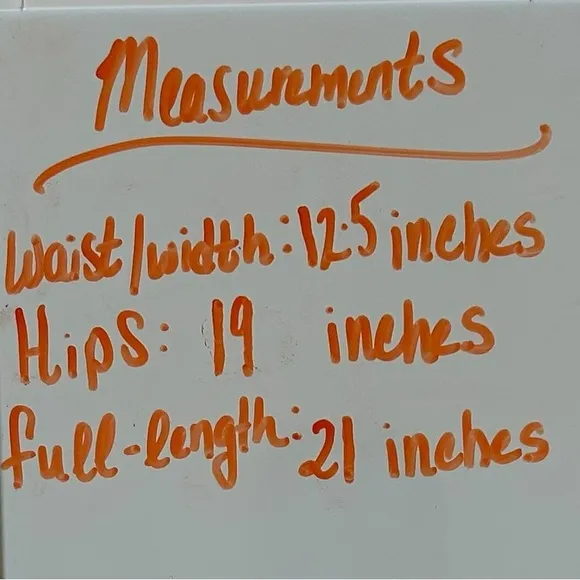 Measurements
Waist/width: 12.5 inches
Hips: 19 inches
full-length: 21 inches